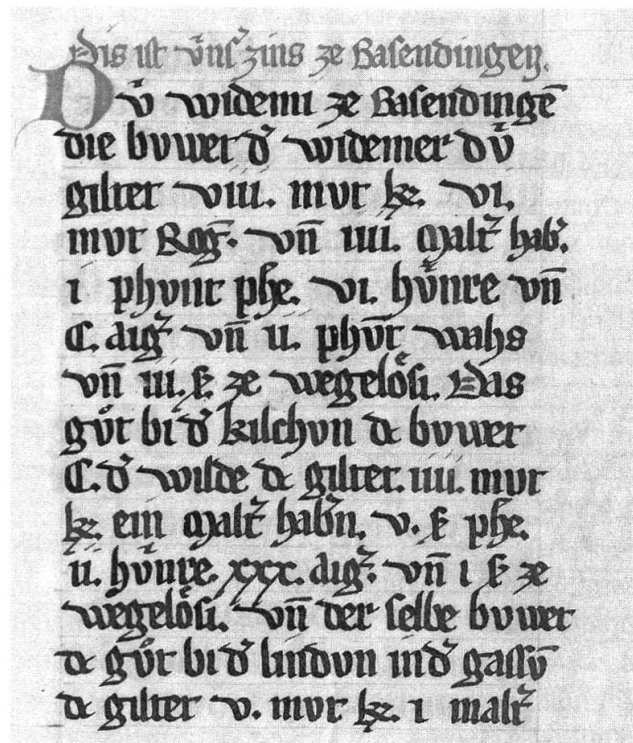 Dis ist v̂nsˀ zins ze Basendingen.
Dv̂ widemi ze Basendingē
die bvwet dˀ widemer dv̂
giltet viii. mvt kˀ. vi.
mvt Roḡ. vn̄ iiii. Maltˀ habˀ.
i phvnt phe. vi. hv̂nre vn̄
C. aigˀ vn̄ ii. phv̄t wahs
vn̄ iii. ẞ. ze wegelo̊si. Das
gv̊t bi dˀ kilchvn dc bvwet
C. dˀ wilde dc giltet. iiii. mvt
kˀ. ein Maltˀ habˀn. v. ẞ phe.
ii. hv̂nre. xxx. aigˀ. vn̄ i ẞ ze
wegelo̊si. vn̄ der selbe bvwet
dc gv̊t bi dˀ lindvn indˀ gassv̄
dc giltet v. mvt kˀ. i maltˀ